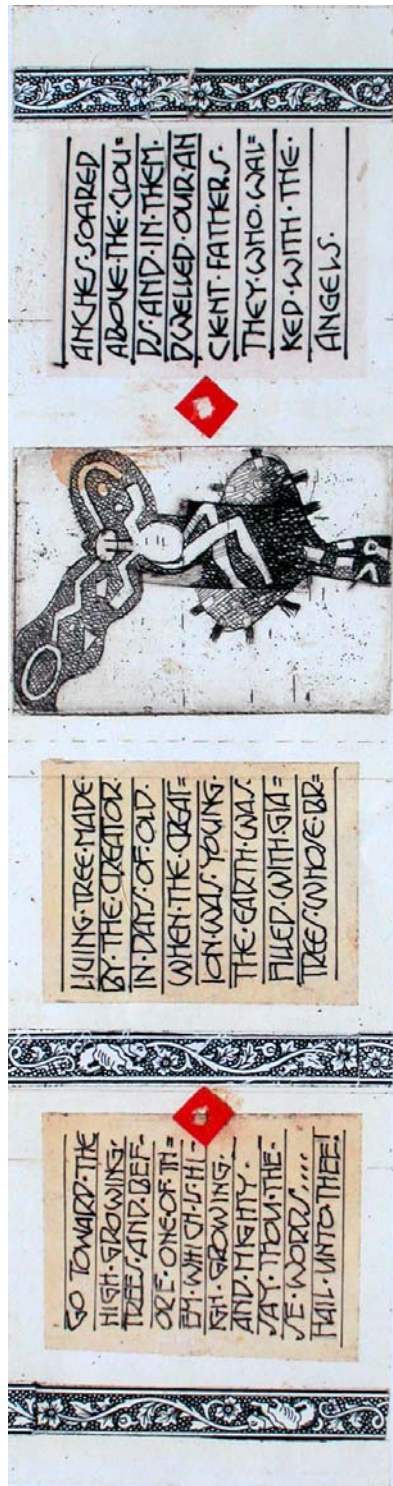 GO TOWARD·THE
HIGH·GROWING·
TREES·AND·BEF-
ORE·ONE·OF·TH=
EM·WHICH·IS·HI-
GH·GROWING·
AND·MIGHTY·
SAY·THOU·THE-
SE·WORDS....
HAIL·UNTO·THEE!
LIVING·TREE·MADE·
BY·THE·CREATOR·
IN·DAYS·OF·OLD·
WHEN·THE·CREAT=
ION·WAS·YOUNG·
THE·EARTH·WAS·
FILLED·WITH·GIA=
TREES·WHOSE·BR=
ANCHES·SOARED
ABOVE·THE·CLOU=
DS·AND·IN·THEM·
DWELLED·OUR·AN
CIENT·FATHERS·
THEY·WHO·WAL=
KED·WITH·THE·
ANGELS·